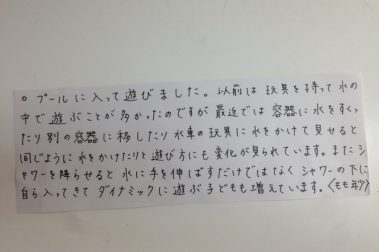 ○ プールに入って遊びました。以前は 玩具を持って水の
中で遊ぶことが多かったのですが 最近では 容器に水をすくっ
たり別の容器に移したり水車の玩具に水をかけて見せると
同じように水をかけたりと遊び方にも変化が見られています。またシ
ャワーを降らせると 水に手を伸ばすだけではなく シャワーの下に
自ら入ってきて ダイナミックに遊ぶ子どもも増えています。〈もも組〉